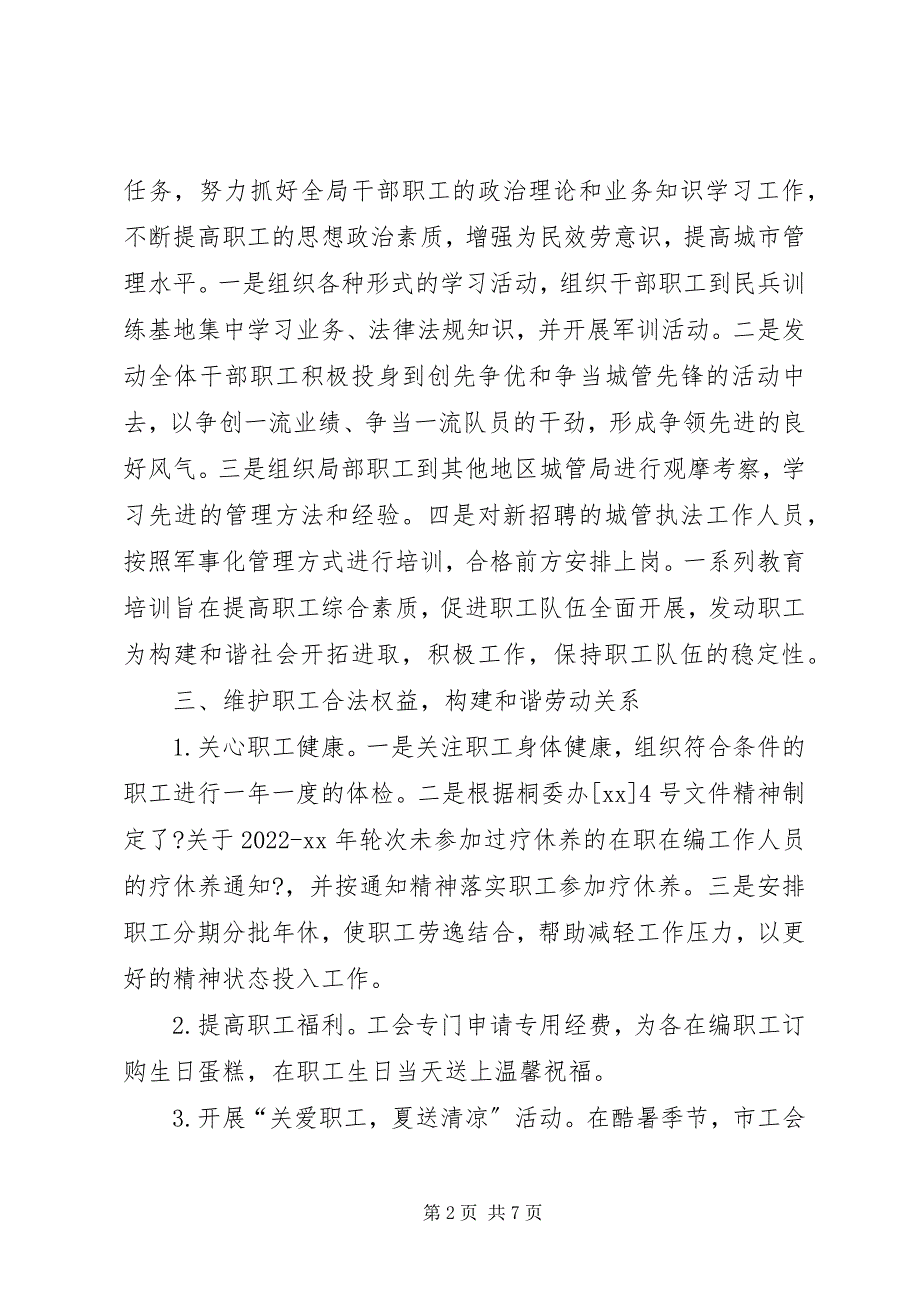 任务，努力抓好全局干部职工的政治理论和业务知识学习工作，
不断提高职工的思想政治素质，增强为民效劳意识，提高城市管
理水平。一是组织各种形式的学习活动，组织干部职工到民兵训
练基地集中学习业务、法律法规知识，并开展军训活动。二是发
动全体干部职工积极投身到创先争优和争当城管先锋的活动中
去，以争创一流业绩、争当一流队员的干劲，形成争领先进的良
好风气。三是组织局部职工到其他地区城管局进行观摩考察，学
习先进的管理方法和经验。四是对新招聘的城管执法工作人员，
按照军事化管理方式进行培训，合格前方安排上岗。一系列教育
培训旨在提高职工综合素质，促进职工队伍全面开展，发动职工
为构建和谐社会开拓进取，积极工作，保持职工队伍的稳定性。
三、维护职工合法权益，构建和谐劳动关系
1.关心职工健康。一是关注职工身体健康，组织符合条件的
职工进行一年一度的体检。二是根据桐委办[xx]4 号文件精神制
定了?关于 2022-xx 年轮次未参加过疗休养的在职在编工作人员
的疗休养通知?，并按通知精神落实职工参加疗休养。三是安排
职工分期分批年休，使职工劳逸结合，帮助减轻工作压力，以更
好的精神状态投入工作。
2.提高职工福利。工会专门申请专用经费，为各在编职工订
购生日蛋糕，在职工生日当天送上温馨祝福。
3.开展“关爱职工，夏送清凉〞活动。在酷暑季节，市工会
第 2 页 共 7 页